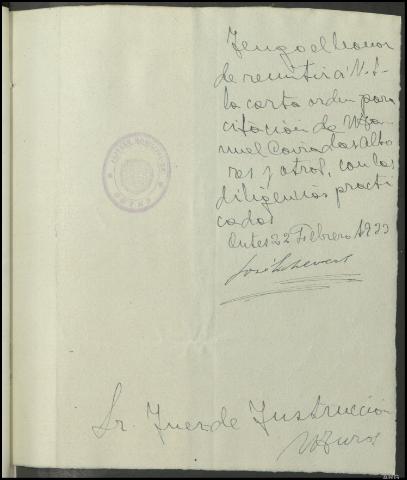 Tengo el honor
de remitir á V. S.
la carta orden para
citación de Ma-
nuel Couradas Albo
res y otros, con las
diligencias practi
cadas
Outes 22 Febrero 1933
José
Sr. Juez de Instrucción
Muros